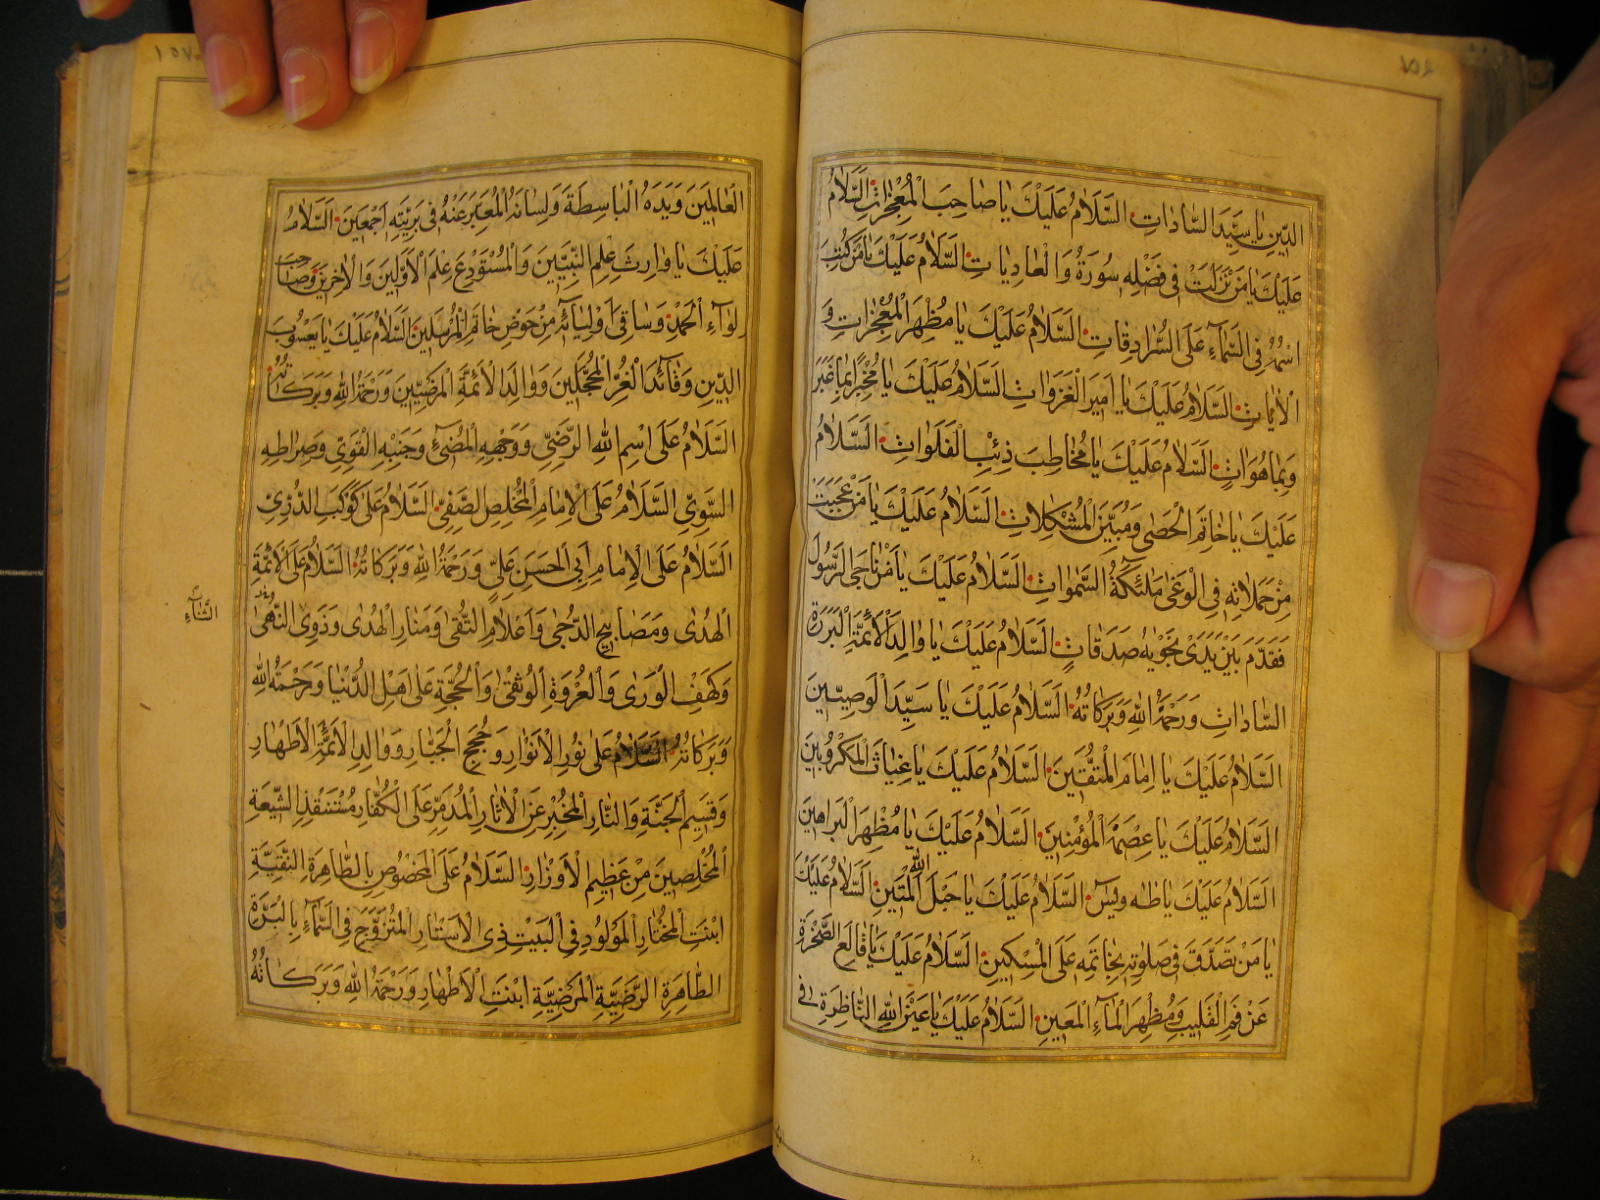 الدِّينِ يٰا سَيِّدَ السّٰادٰاتِ اَلسَّلٰامُ عَلَيْكَ يٰا صٰاحِبَ الْمُعْجِزٰاتِ اَلسَّلٰامُ
عَلَيْكَ يٰا مَنْ نَزَلَتْ فى فَضْلِهِ سُورَةُ وَالْعٰادِيٰاتِ اَلسَّلٰامُ عَلَيْكَ يٰا مَنْ كُتِبَ
اسْمُهُ فِى السَّمٰاءِ عَلَى السُّرٰادِقٰاتِ اَلسَّلٰامُ عَلَيْكَ يٰا مُظْهِرَ الْمُعْجِزٰاتِ وَ
الْاٰيٰاتِ اَلسَّلٰامُ عَلَيْكَ يٰا اَمِيرَ الْغَزَوٰاتِ اَلسَّلٰامُ عَلَيْكَ يٰا مُخْبِرًا بِمٰا غَبَرَ
وَبِمٰا هُوَ اٰتٍ اَلسَّلٰامُ عَلَيْكَ يٰا مُخٰاطِبَ ذِئْبِ الْفَلَوٰاتِ اَلسَّلٰامُ
عَلَيْكَ يٰا خٰاتِمَ الْحَصٰى وَمُبَيِّنَ الْمُشْكِلٰاتِ اَلسَّلٰامُ عَلَيْكَ يٰا مَنْ عَجِبَتْ
مِنْ حَمَلٰاتِهِ فِى الْوَغٰى مَلٰئِكَةُ السَّمٰوٰاتِ اَلسَّلٰامُ عَلَيْكَ يٰا مَنْ نٰاجَى الرَّسُولَ
فَقَدَّمَ بَيْنَ يَدَىْ نَجْوٰيهُ صَدَقٰاتٍ اَلسَّلٰامُ عَلَيْكَ يٰا وٰالِدَ الْاَئِمَّةِ الْبَرَرَةِ
السّٰادٰاتِ وَرَحْمَةُ اللهِ وَبَرَكٰاتُهُ اَلسَّلٰامُ عَلَيْكَ يٰا سَيِّدَ الْوَصِيِّينَ
اَلسَّلٰامُ عَلَيْكَ يٰا اِمٰامَ الْمُتَّقِينَ اَلسَّلٰامُ عَلَيْكَ يٰا غِيٰاثَ الْمَكْرُوبِينَ
اَلسَّلٰامُ عَلَيْكَ يٰا عِصْمَةَ الْمُؤْمِنِينَ اَلسَّلٰامُ عَلَيْكَ يٰا مُظْهِرَ الْبَرٰاهِينَ
اَلسَّلٰامُ عَلَيْكَ يٰا طٰهٰ وَيٰسٓ اَلسَّلٰامُ عَلَيْكَ يٰا حَبْلَ اللهِ الْمَتِينَ اَلسَّلٰامُ عَلَيْكَ
يٰا مَنْ تَصَدَّقَ فى صَلٰوتِهِ بِخٰاتَمِهِ عَلَى الْمِسْكِينِ اَلسَّلٰامُ عَلَيْكَ يٰا قٰالِعَ الصَّخْرَةِ
عَنْ فَمِ الْقَلِيبِ وَمُظْهِرَ الْمٰاءِ الْمَعِينِ اَلسَّلٰامُ عَلَيْكَ يٰا عَيْنَ اللهِ النّٰاظِرَةَ فِى
الْعٰالَمِينَ وَيَدَهُ الْبٰاسِطَةَ وَلِسٰانَهُ الْمُعَبِّرَ عَنْهُ فى بَرِيَّتِهِ اَجْمَعِينَ اَلسَّلٰامُ
عَلَيْكَ يٰا وٰارِثَ عِلْمِ النَّبِيِّينَ وَالْمُسْتَوْدَعَ عِلْمِ الْاَوَّلِينَ وَالْاٰخِرِينَ وَصٰاحِبَ
لِوٰاءِ الْحَمْدِ وَسٰاقِىَ اَوْلِيٰائِهِ مِنْ حَوْضِ خٰاتَمِ الْمُرْسَلِينَ اَلسَّلٰامُ عَلَيْكَ يٰا يَعْسُوبَ
الدِّينِ وَقٰائِدَ الْغُرِّ الْمُحَجَّلِينَ وَوٰالِدَ الْاَئِمَّةِ الْمَرْضِيِّينَ وَرَحْمَةُ اللهِ وَبَرَكٰاتُهُ
اَلسَّلٰامُ عَلَى اسْمِ اللهِ الرَّضِىِّ وَوَجْهِهِ الْمُضِىءِ وَجَنْبِهِ الْقَوِىِّ وَصِرٰاطِهِ
السَّوِىِّ اَلسَّلٰامُ عَلَى الْاِمٰامِ الْمُخْلِصِ الصَّفِىِّ اَلسَّلٰامُ عَلٰى كَوْكَبِ الدُّرِّىِّ
اَلسَّلٰامُ عَلَى الْاِمٰامِ اَبِى الْحَسَنِ عَلِىٍّ وَرَحْمَةُ اللهِ وَبَرَكٰاتُهُ اَلسَّلٰامُ عَلٰى اَئِمَّةِ
الْهُدٰى وَمَصٰابِيحِ الدُّجٰى وَاَعْلٰامِ التُّقٰى وَمَنٰارِ الْهُدٰى وَذَوِى النُّهٰى
وَكَهْفِ الْوَرٰى وَالْعُرْوَةِ الْوُثْقٰى وَالْحُجَّةِ عَلٰى اَهْلِ الدُّنْيٰا وَرَحْمَةُ اللهِ
وَبَرَكٰاتُهُ اَلسَّلٰامُ عَلٰى نُورِ الْاَنْوٰارِ وَحُجَجِ الْجَبّٰارِ وَوٰالِدِ الْاَئِمَّةِ الْاَطْهٰارِ
وَقَسِيمِ الْجَنَّةِ وَالنّٰارِ الْمُخْبِرِ عَنِ الْاٰثٰارِ الْمُدَمِّرِ عَلَى الْكُفّٰارِ مُسْتَنْقِذِ الشِّيعَةِ
الْمُخْلِصِينَ مِنْ عَظِيمِ الْاَوْزٰارِ اَلسَّلٰامُ عَلَى الْمَخْصُوصِ بِالطّٰاهِرَةِ التَّقِيَّةِ
ابْنَتِ الْمُخْتٰارِ الْمَوْلُودِ فِى الْبَيْتِ ذِى الْاَسْتٰارِ الْمُتَزَوَّجِ فِى السَّمٰاءِ بِالْبَرَّةِ
الطّٰاهِرَةِ الرَّضِيَّةِ الْمَرْضِيَّةِ ابْنَتِ الْاَطْهٰارِ وَرَحْمَةُ اللهِ وَبَرَكٰاتُهُ